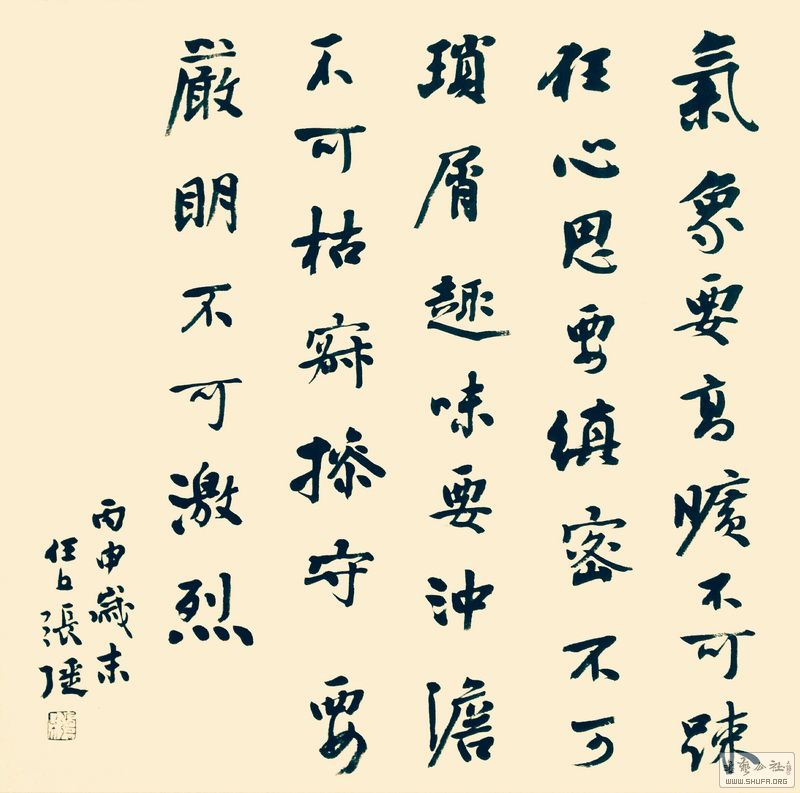 氣象要高曠不可踈
狂心思要縝密不可
瑣屑趣味要沖澹
不可枯寂操守要
厳明不可激烈
丙申歲末
任丘張
WWW.SHUFA.ORG